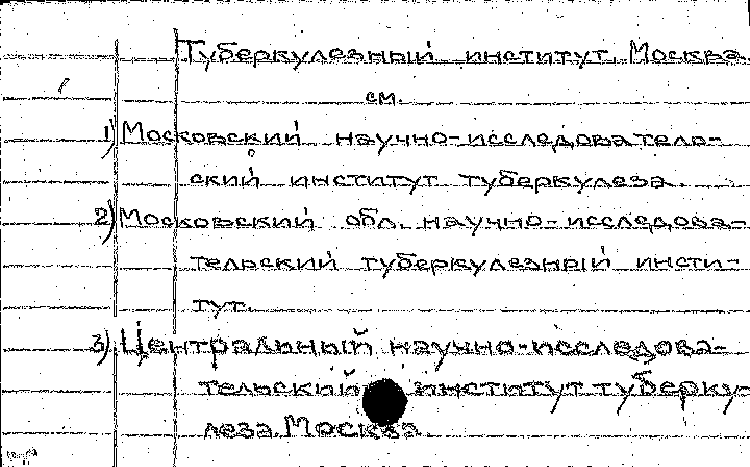 Туберкулезный институт, Москва
см.
1) Московский научно-исследователь-
ский институт туберкулеза.
2) Московский обл. научно-исследова-
тельский туберкулезный инсти-
тут.
3) Центральный научно-исследова-
тельский институт туберку-
леза. Москва.